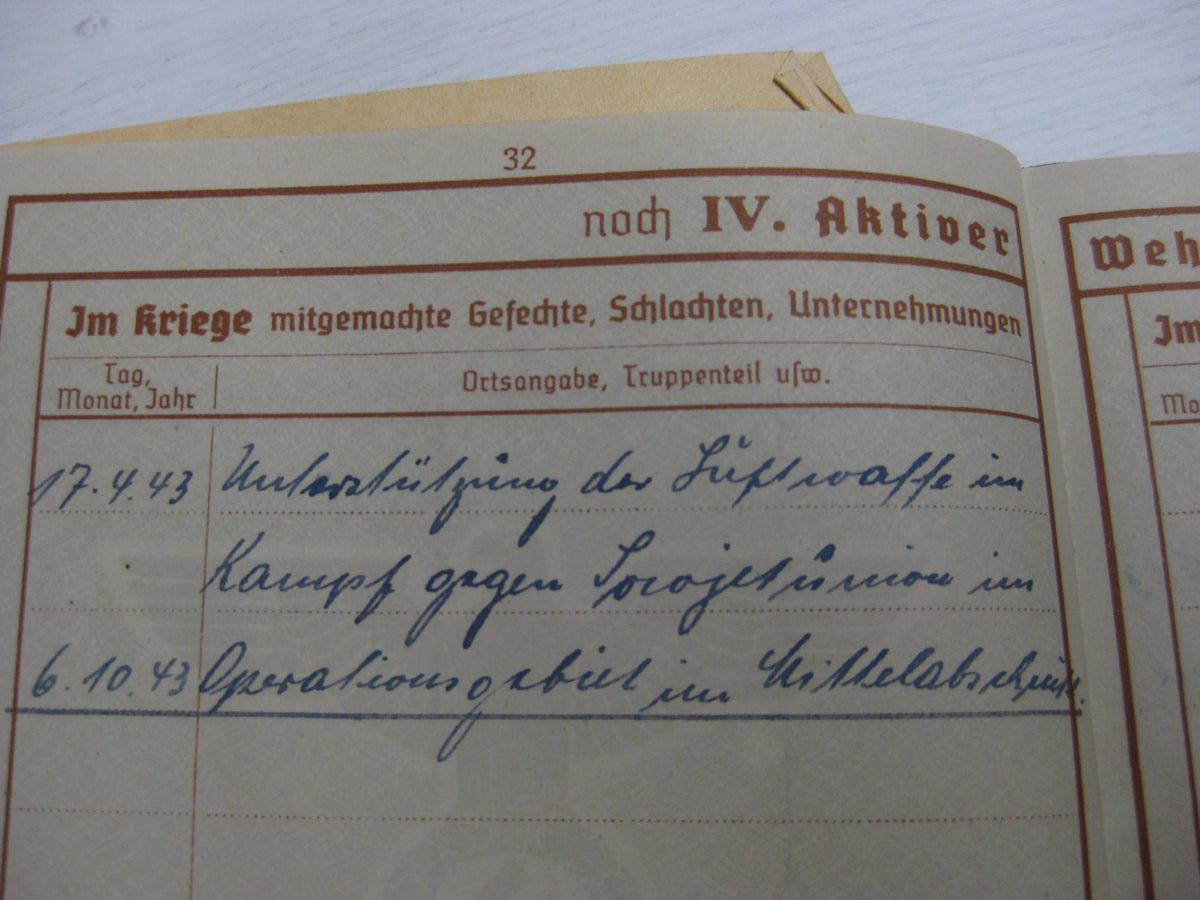 32
noch IV. Aktiver
Weh
Im Kriege mitgemachte Gefechte, Schlachten, Unternehmungen
Im
Tag,
Monat, Jahr
Ortsangabe, Truppenteil usw.
Mo
17.4.43 Unterstützung der Luftwaffe im
Kampf gegen Sowjetunion im
6.10.43 Operationsgebiet im Mittelabschnitt.